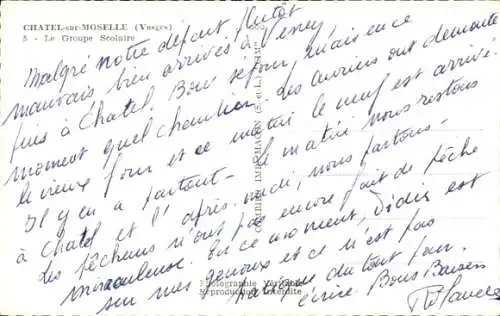 CHATEL-sur-MOSELLE (Vosges)
5 - Le Groupe Scolaire
Malgré notre départ plutôt
mauvais bien arrivés à Vesney
puis à Chatel. Bon séjour, mais en ce
moment quel chantier. Les avions ont demandé
le vieux four et ce matin le neuf est arrivé.
Il y en a partout - le matin nous restons
à Chatel et l'après-midi, nous partons.
Les pêcheurs n'ont pas encore fait de pêche
miraculeuse. En ce moment, Didier est
sur mes genoux et ce n'est pas
pratique du tout pour
écrire. Bons Baisers
COMBIER IMP. MACON (S.-et-L.) "CIM"
Photographie Véritable
Reproduction Interdite